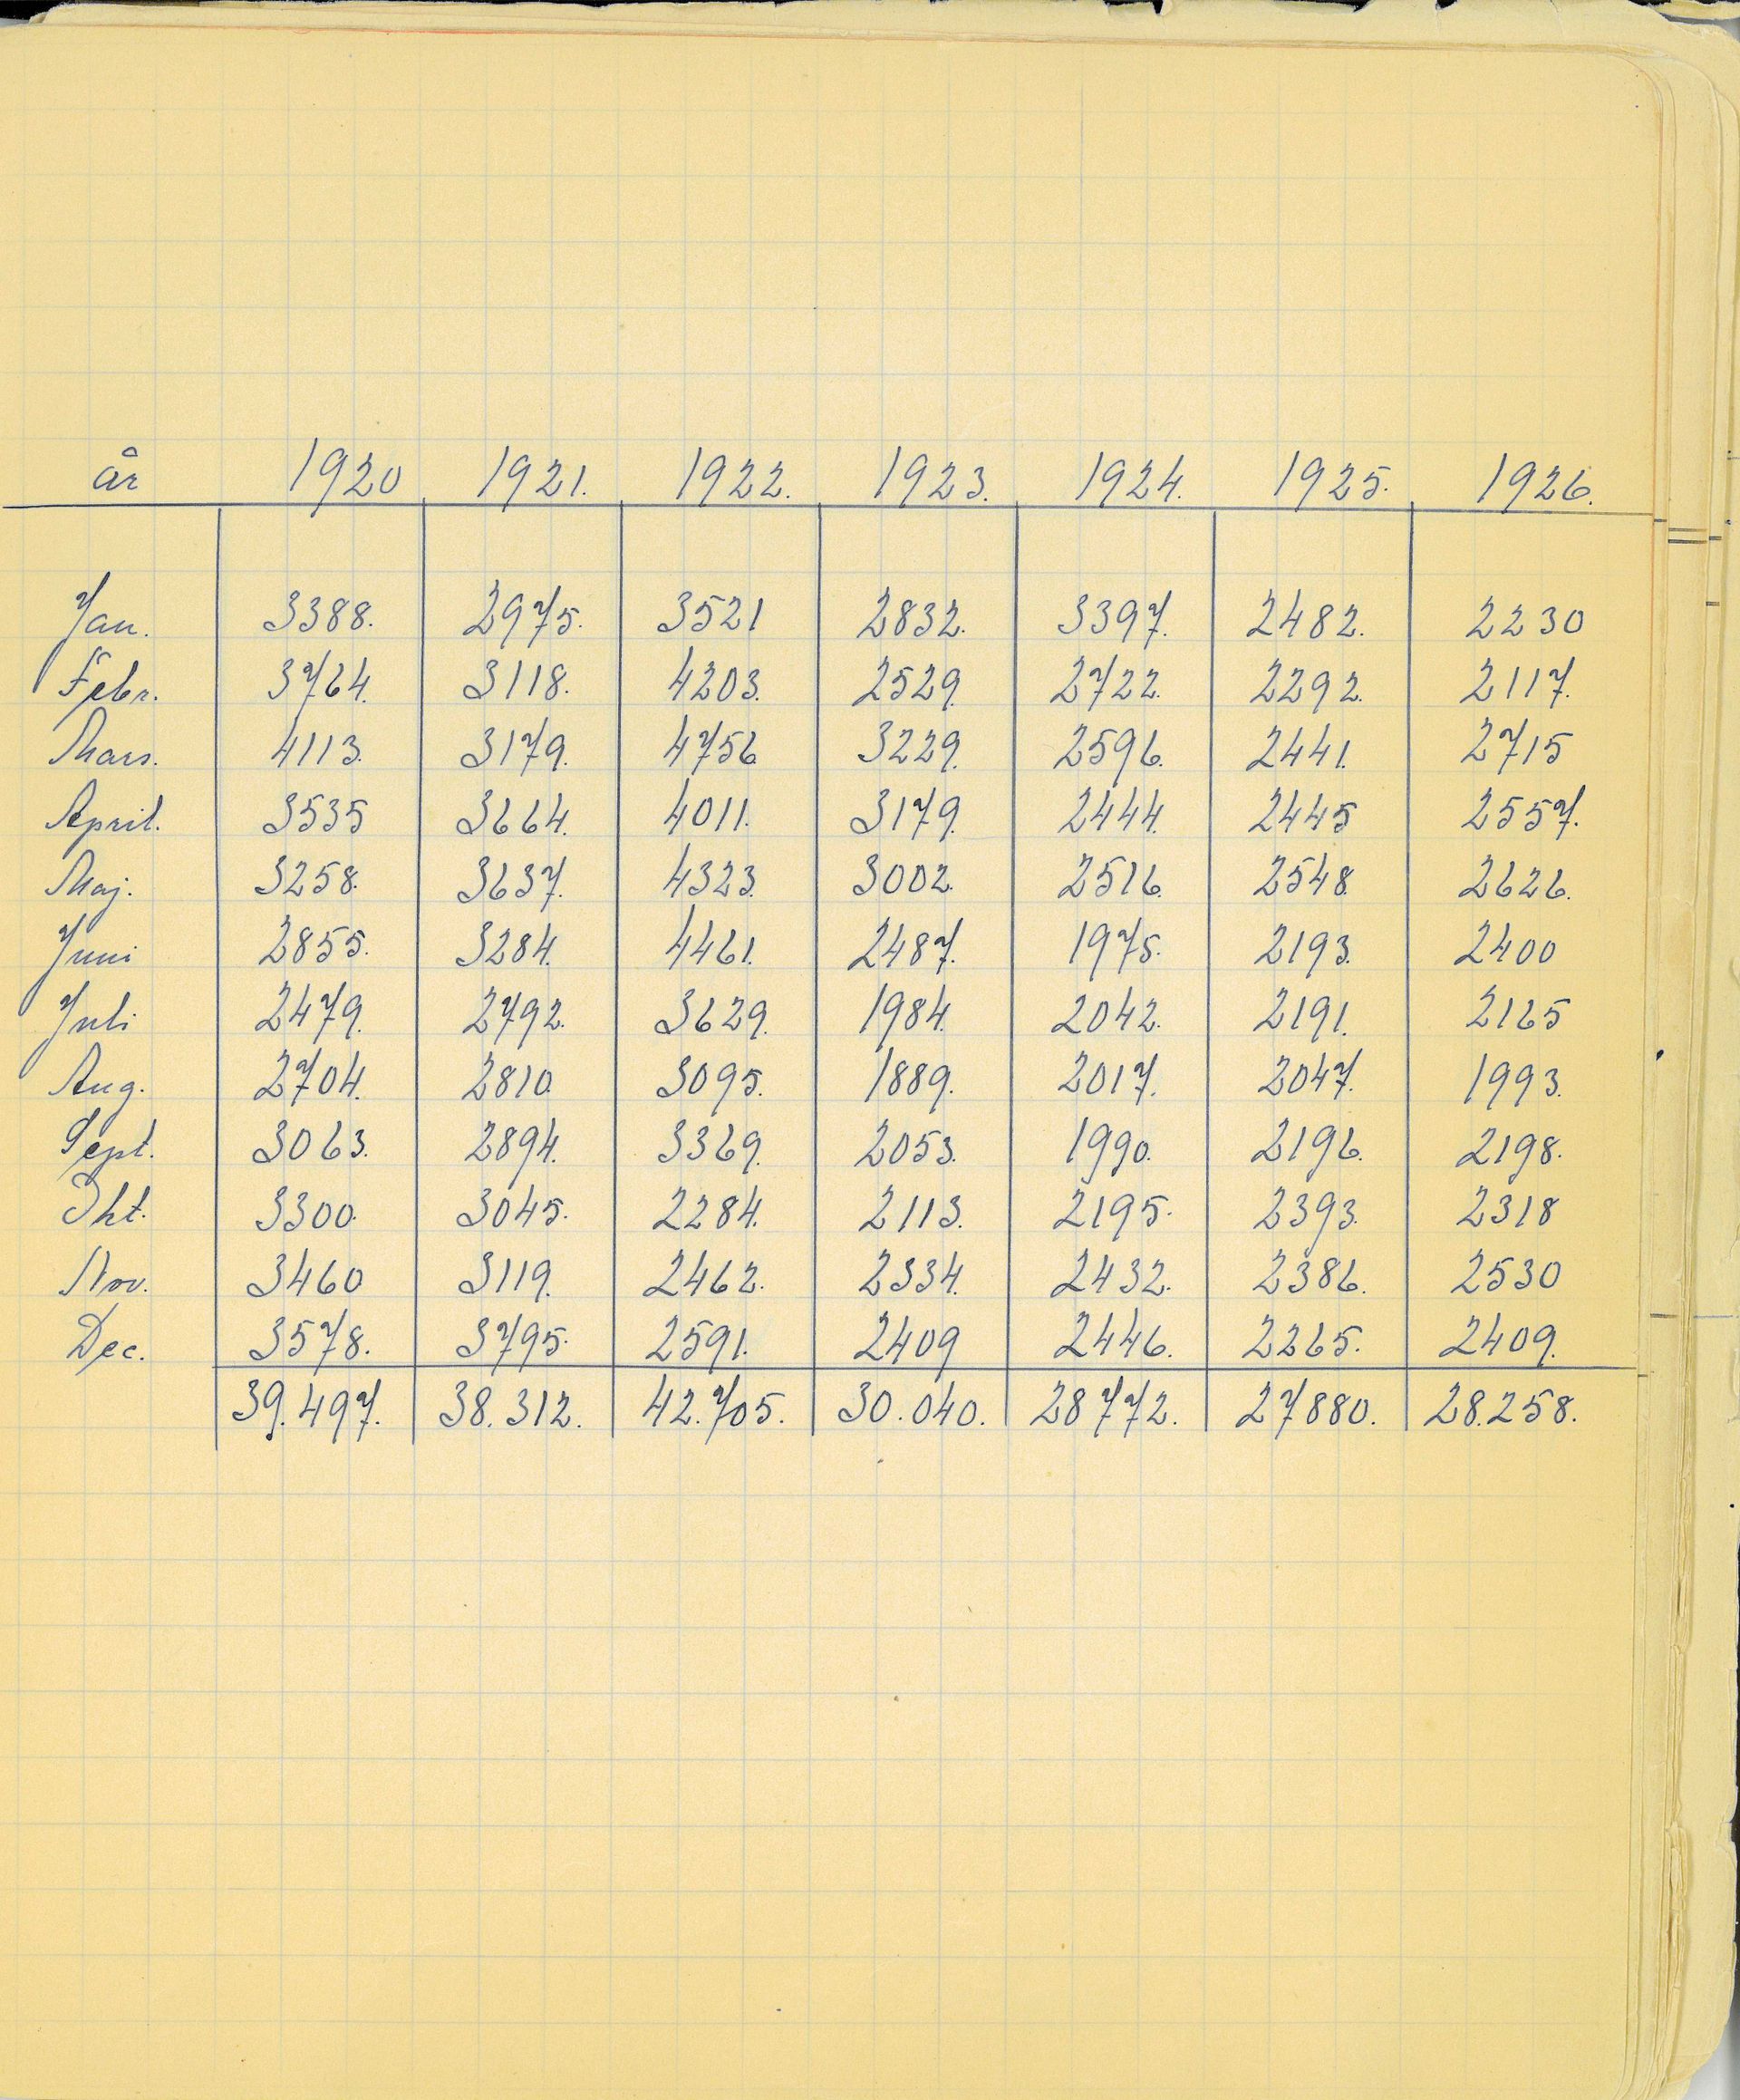 år 1920 1921. 1922. 1923. 1924. 1925. 1926.
Jan. 3388. 2975. 3521 2832. 3397. 2482. 2230
Febr. 3764. 3118. 4203. 2529. 2722. 2292. 2117.
Mars. 4113. 3179. 4756 3229. 2596. 2441. 2715
April. 3535 3664. 4011. 3179. 2444. 2445 2557.
Maj. 3258. 3637. 4323. 3002. 2516. 2548. 2626.
Juni 2855. 3284. 4461. 2487. 1975. 2193. 2400
Juli 2479. 2792. 3629. 1984. 2042. 2191. 2165
Aug. 2704. 2810. 3095. 1889. 2017. 2047. 1993.
Sept. 3063. 2894. 3369. 2053. 1990. 2196. 2198.
Okt. 3300. 3045. 2284. 2113. 2195. 2393. 2318
Nov. 3460 3119. 2462. 2334. 2432. 2386. 2530
Dec. 3578. 3795. 2591. 2409 2446. 2265. 2409.
39.497. 38.312. 42.705. 30.040. 28772. 27880. 28.258.